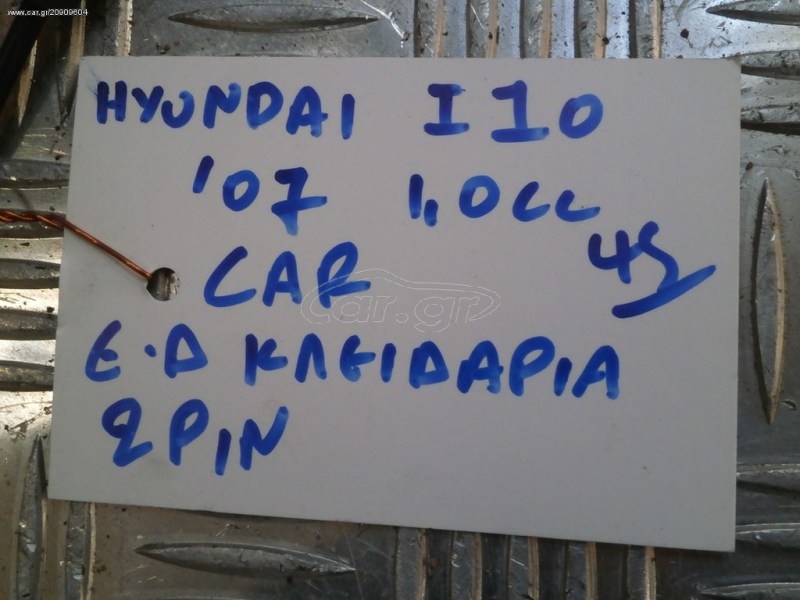 www.car.gr/20909604
HYUNDAI I10
'07 1,0cc
45
CAR
car.gr
Ε.Δ ΚΛΕΙΔΑΡΙΑ
2 PIN